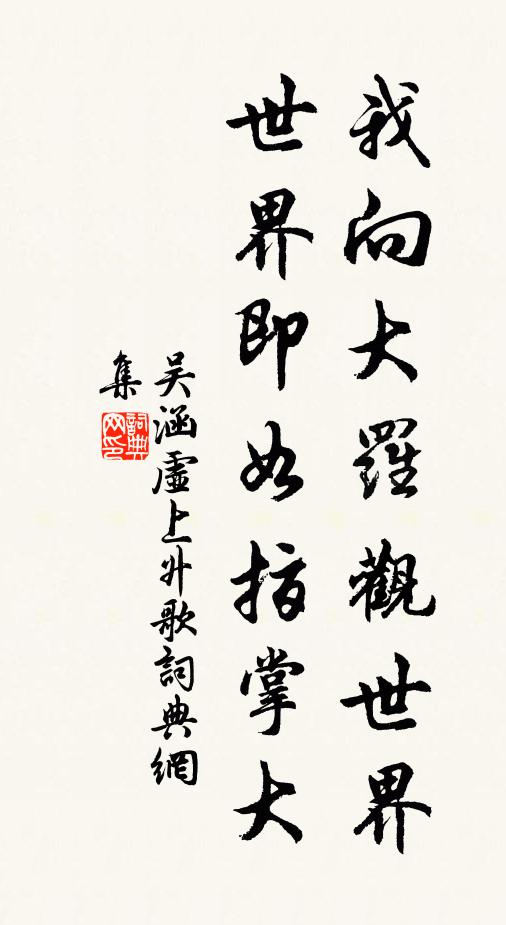 我向大羅觀世界
世界即如指掌大
吳涵虛上升歌詞典網
集
詞典網印